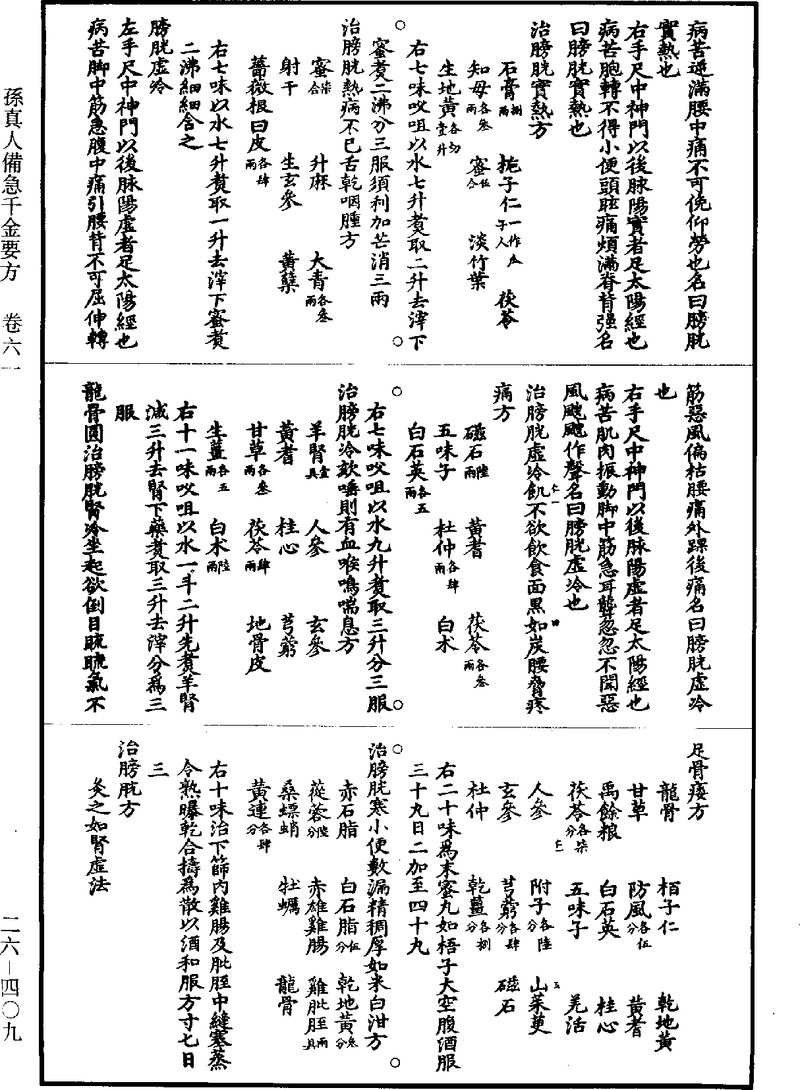 病苦逆滿腰中痛不可俛仰勞也名曰膀胱
實熱也
右手尺中神門以後脉陽實者足太陽經也
病苦胞轉不得小便頭眩痛煩滿脊背強名
曰膀胱實熱也
治膀胱實熱方
石膏捌兩 梔子仁一作瓜子人 茯苓
知母各叁兩 蜜伍合 淡竹葉
生地黄各切壹升
右七味㕮咀以水七升煑取二升去滓下
蜜煑二沸分三服須利加芒消三兩
治膀胱熱病不已舌乾咽腫方
蜜柒合 升麻 大青各叁兩
射干 生玄參 黄蘗
薔薇根白皮各肆兩
右七味以水七升煑取一升去滓下蜜煑
二沸細細含之
膀胱虛冷
左手尺中神門以後脉陽虛者足太陽經也
病苦脚中筋急腹中痛引腰背不可屈伸轉
筋惡風偏枯腰痛外踝後痛名曰膀胱虛冷
也
右手尺中神門以後脉陽虛者足太陽經也
病苦肌肉振動脚中筋急耳聾忽忽不聞惡
風颼颼作聲名曰膀胱虛冷也
治膀胱虛冷飢不欲飲食面黑如炭腰脅疼
痛方
磁石陸兩 黄耆 茯苓各叁兩
五味子 杜仲各肆兩 白术
白石英各五兩
右七味㕮咀以水九升煑取三升分三服
治膀胱冷欬唾則有血喉鳴喘息方
羊腎壹具 人參 玄參
黄耆 桂心 芎藭
甘草各叁兩 茯苓肆兩 地骨皮
生薑各五兩 白术陸兩
右十一味㕮咀以水一斗二升先煑羊腎
減三升去腎下藥煑取三升去滓分爲三
服
龍骨圓治膀胱腎冷坐起欲倒目䀮䀮氣不
足骨痿方
龍骨 栢子仁 乾地黄
甘草 防風各伍分 黄耆
禹餘粮 白石英 桂心
茯苓各柒分 五味子 羌活
人參 附子各陸分 山茱萸
玄參 芎藭各肆分 磁石
杜仲 乾薑各捌分
右二十味爲末蜜丸如梧子大空腹酒服
三十九日二加至四十九
治膀胱寒小便數漏精稠厚如米白泔方
赤石脂 白石脂伍分 乾地黄各叁分
蓯蓉陸分 赤雄雞腸 雞肶胵兩具
桑螵蛸 牡蠣 龍骨
黄連各肆分
右十味治下篩内雞腸及肶胵中縫塞蒸
令熟曝乾合擣爲散以酒和服方寸七日
三
治膀胱方
灸之如腎虛法
孫真人備急千金要方 卷六一
二六—四〇九